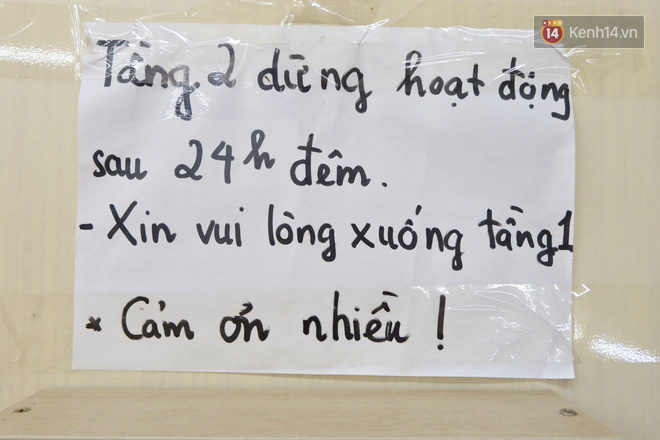 14 Kenh14.vn
Tầng 2 dừng hoạt động
sau 24h đêm.
- Xin vui lòng xuống tầng 1
* Cảm ơn nhiều !